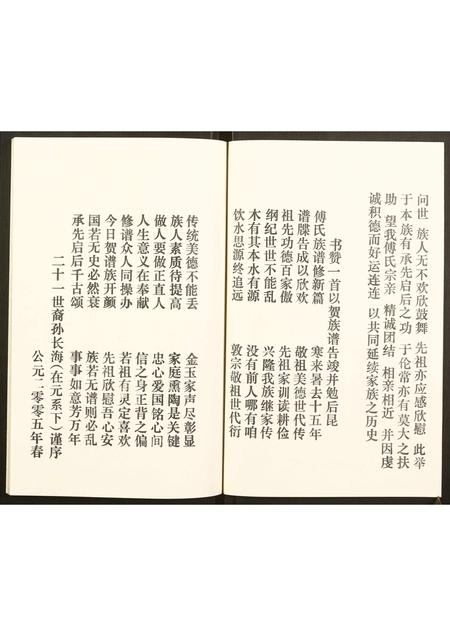 问世 族人无不欢欣鼓舞 先祖亦应感欣慰 此举
于本族有承先启后之功 于伦常亦有莫大之扶
助 望我傅氏宗亲 精诚团结 相亲相近 并因虔
诚积德而好运连连 以共同延续家族之历史
书赞一首以贺族谱告竣并勉后昆
傅氏族谱修新篇 寒来暑去十五年
谱牒告成以欣欢 敬祖美德世代传
祖先功德百家傲 先祖家训读耕俭
纲纪世世不能乱 兴隆我族继家传
木有其本水有源 没有前人哪有咱
饮水思源终追远 敦宗敬祖世代衍
传统美德不能丢 金玉家声尽彰显
族人素质待提高 家庭熏陶是关键
做人要做正直人 忠心爱国铭心间
人生意义在奉献 信之身正背之偏
修谱众人同操办 若祖有灵定喜欢
今日贺谱族开颜 先祖欣慰吾心安
国若无史必然衰 族若无谱则必乱
承先启后千古颂 事事如意芳万年
二十一世裔孙长海（在元系下）谨序
公元二零零五年春